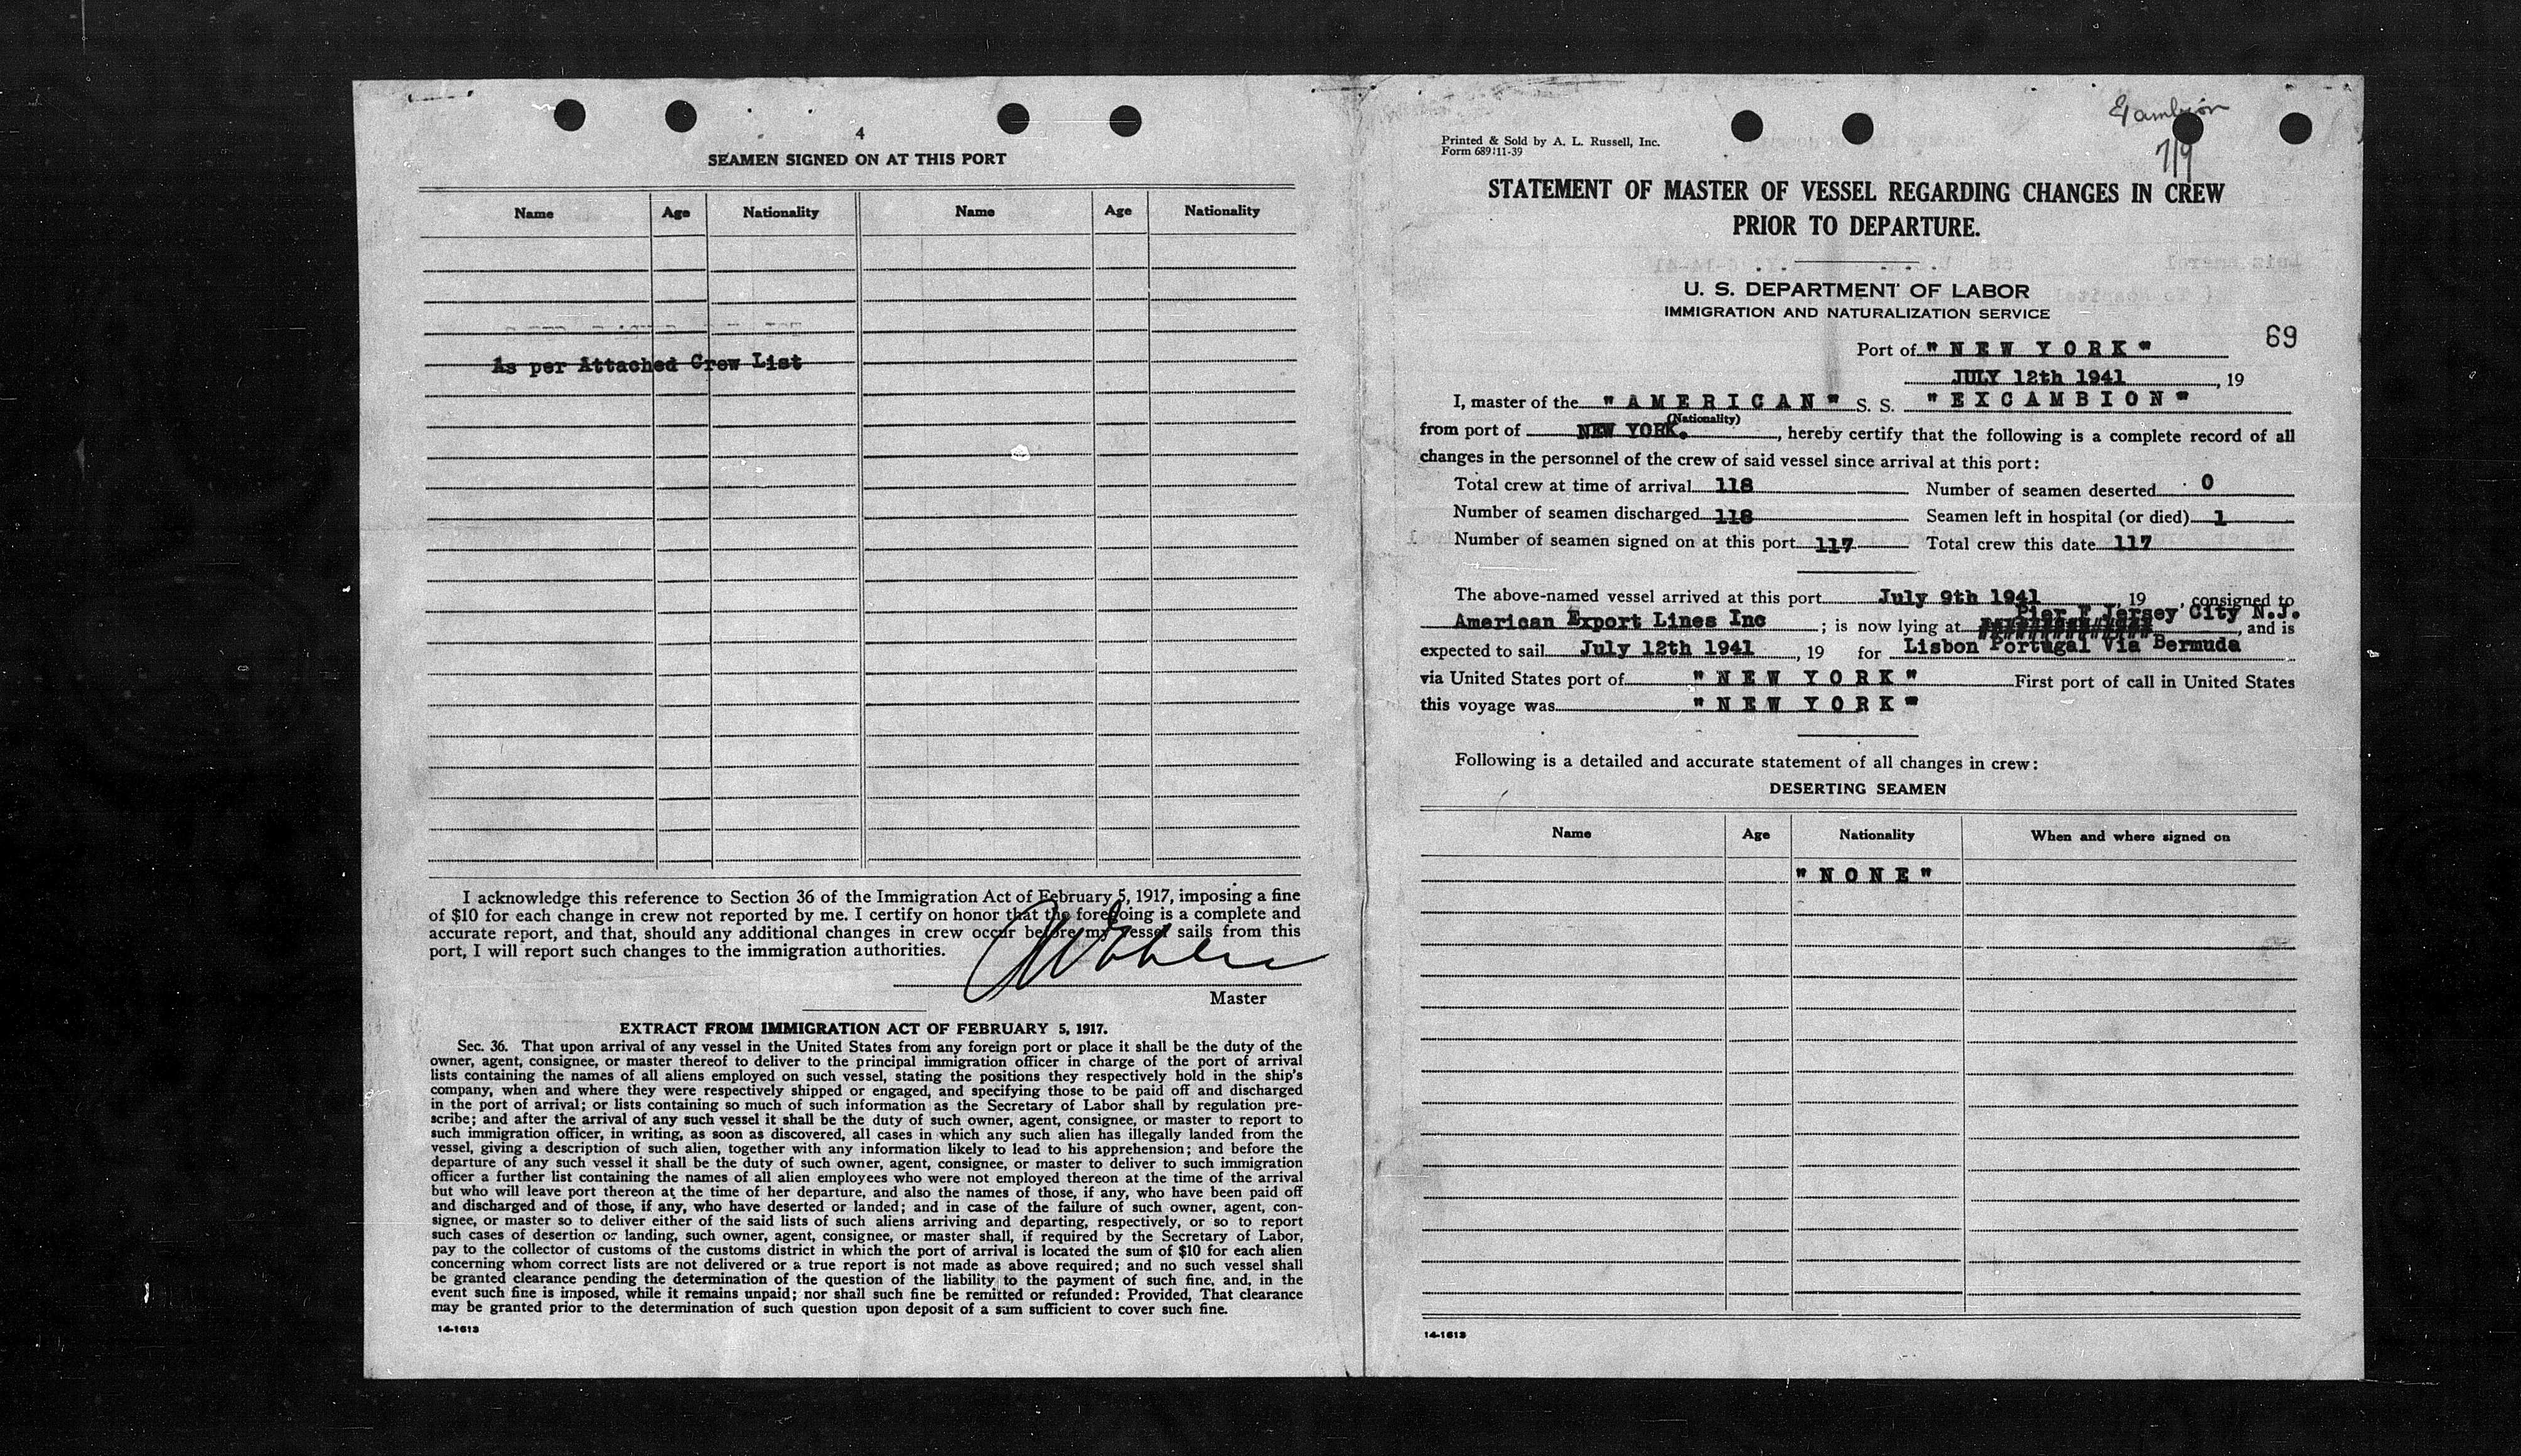 4
SEAMEN SIGNED ON AT THIS PORT
Name Age Nationality Name Age Nationality
As per Attached Crew List
I acknowledge this reference to Section 36 of the Immigration Act of February 5, 1917, imposing a fine
of $10 for each change in crew not reported by me. I certify on honor that the foregoing is a complete and
accurate report, and that, should any additional changes in crew occur before my vessel sails from this
port, I will report such changes to the immigration authorities.
Master
EXTRACT FROM IMMIGRATION ACT OF FEBRUARY 5, 1917.
Sec. 36. That upon arrival of any vessel in the United States from any foreign port or place it shall be the duty of the
owner, agent, consignee, or master thereof to deliver to the principal immigration officer in charge of the port of arrival
lists containing the names of all aliens employed on such vessel, stating the positions they respectively hold in the ship's
company, when and where they were respectively shipped or engaged, and specifying those to be paid off and discharged
in the port of arrival; or lists containing so much of such information as the Secretary of Labor shall by regulation pre-
scribe; and after the arrival of any such vessel it shall be the duty of such owner, agent, consignee, or master to report to
such immigration officer, in writing, as soon as discovered, all cases in which any such alien has illegally landed from the
vessel, giving a description of such alien, together with any information likely to lead to his apprehension; and before the
departure of any such vessel it shall be the duty of such owner, agent, consignee, or master to deliver to such immigration
officer a further list containing the names of all alien employees who were not employed thereon at the time of the arrival
but who will leave port thereon at the time of her departure, and also the names of those, if any, who have been paid off
and discharged and of those, if any, who have deserted or landed; and in case of the failure of such owner, agent, con-
signee, or master so to deliver either of the said lists of such aliens arriving and departing, respectively, or so to report
such cases of desertion or landing, such owner, agent, consignee, or master shall, if required by the Secretary of Labor,
pay to the collector of customs of the customs district in which the port of arrival is located the sum of $10 for each alien
concerning whom correct lists are not delivered or a true report is not made as above required; and no such vessel shall
be granted clearance pending the determination of the question of the liability to the payment of such fine, and, in the
event such fine is imposed, while it remains unpaid; nor shall such fine be remitted or refunded: Provided, That clearance
may be granted prior to the determination of such question upon deposit of a sum sufficient to cover such fine.
14-1613
7/9
Printed & Sold by A. L. Russell, Inc.
Form 689:11-39
STATEMENT OF MASTER OF VESSEL REGARDING CHANGES IN CREW
PRIOR TO DEPARTURE.
U. S. DEPARTMENT OF LABOR
IMMIGRATION AND NATURALIZATION SERVICE
69
Port of "NEW YORK"
JULY 12th 1941, 19
I, master of the "AMERICAN" S. S. "EXCAMBION"
(Nationality)
from port of NEW YORK., hereby certify that the following is a complete record of all
changes in the personnel of the crew of said vessel since arrival at this port:
Total crew at time of arrival 118 Number of seamen deserted 0
Number of seamen discharged 118 Seamen left in hospital (or died) 1
Number of seamen signed on at this port 117 Total crew this date 117
The above-named vessel arrived at this port July 9th 1941, 19 , consigned to
American Export Lines Inc ; is now lying at Pier F Jersey City N.J., and is
expected to sail July 12th 1941, 19 for Lisbon Portugal Via Bermuda
via United States port of "NEW YORK" First port of call in United States
this voyage was "NEW YORK"
Following is a detailed and accurate statement of all changes in crew:
DESERTING SEAMEN
Name Age Nationality When and where signed on
"NONE"
14-1613